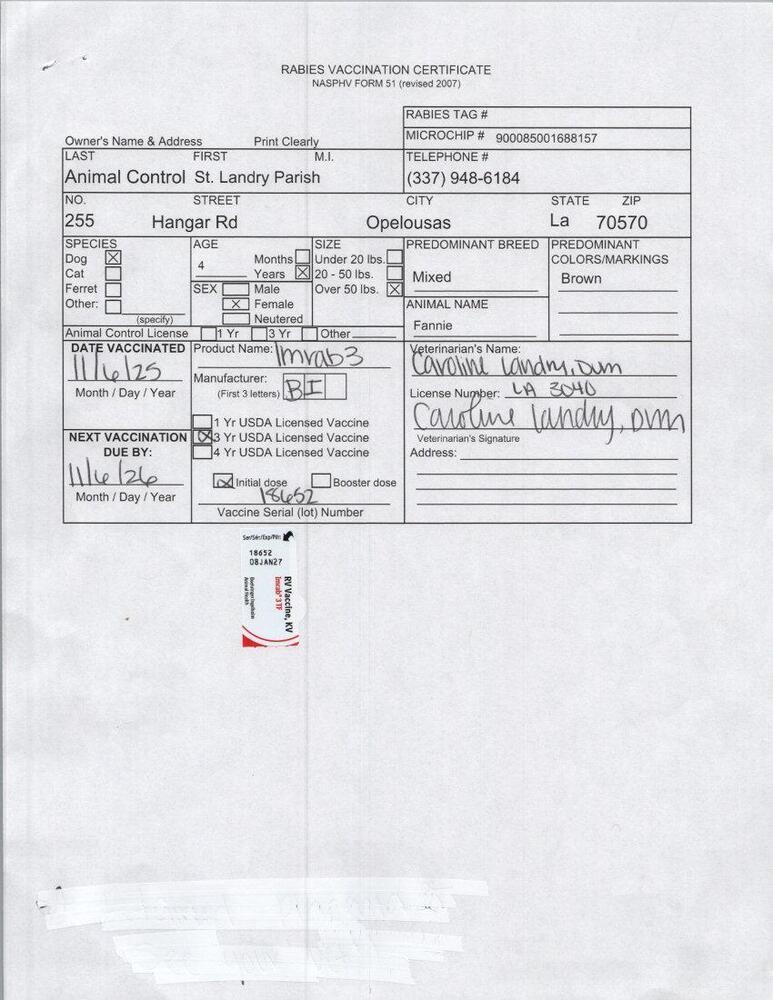 RABIES VACCINATION CERTIFICATE
NASPHV FORM 51 (revised 2007)
RABIES TAG #
Owner's Name & Address Print Clearly
MICROCHIP # 900085001688157
LAST FIRST M.I.
TELEPHONE #
Animal Control St. Landry Parish
(337) 948-6184
NO. STREET CITY STATE ZIP
255 Hangar Rd Opelousas La 70570
SPECIES
Dog X
Cat
Ferret
Other:
(specify)
AGE
4
Months
Years X
SEX Male
X Female
Neutered
SIZE
Under 20 lbs.
20 - 50 lbs.
Over 50 lbs. X
PREDOMINANT BREED
Mixed
PREDOMINANT
COLORS/MARKINGS
Brown
ANIMAL NAME
Fannie
Animal Control License 1 Yr 3 Yr Other
DATE VACCINATED
11/6/25
Month / Day / Year
NEXT VACCINATION
DUE BY:
11/6/26
Month / Day / Year
Product Name: Imrab3
Manufacturer: BI
(First 3 letters)
1 Yr USDA Licensed Vaccine
X 3 Yr USDA Licensed Vaccine
4 Yr USDA Licensed Vaccine
X Initial dose Booster dose
18652
Vaccine Serial (lot) Number
Veterinarian's Name:
Caroline Landry, DVM
License Number: LA 3040
Caroline Landry, DVM
Veterinarian's Signature
Address:
Ser/Sér/Exp/Pér:
18652
08JAN27
RV Vaccine, KV
Imrab® 3 TF
Boehringer Ingelheim
Animal Health